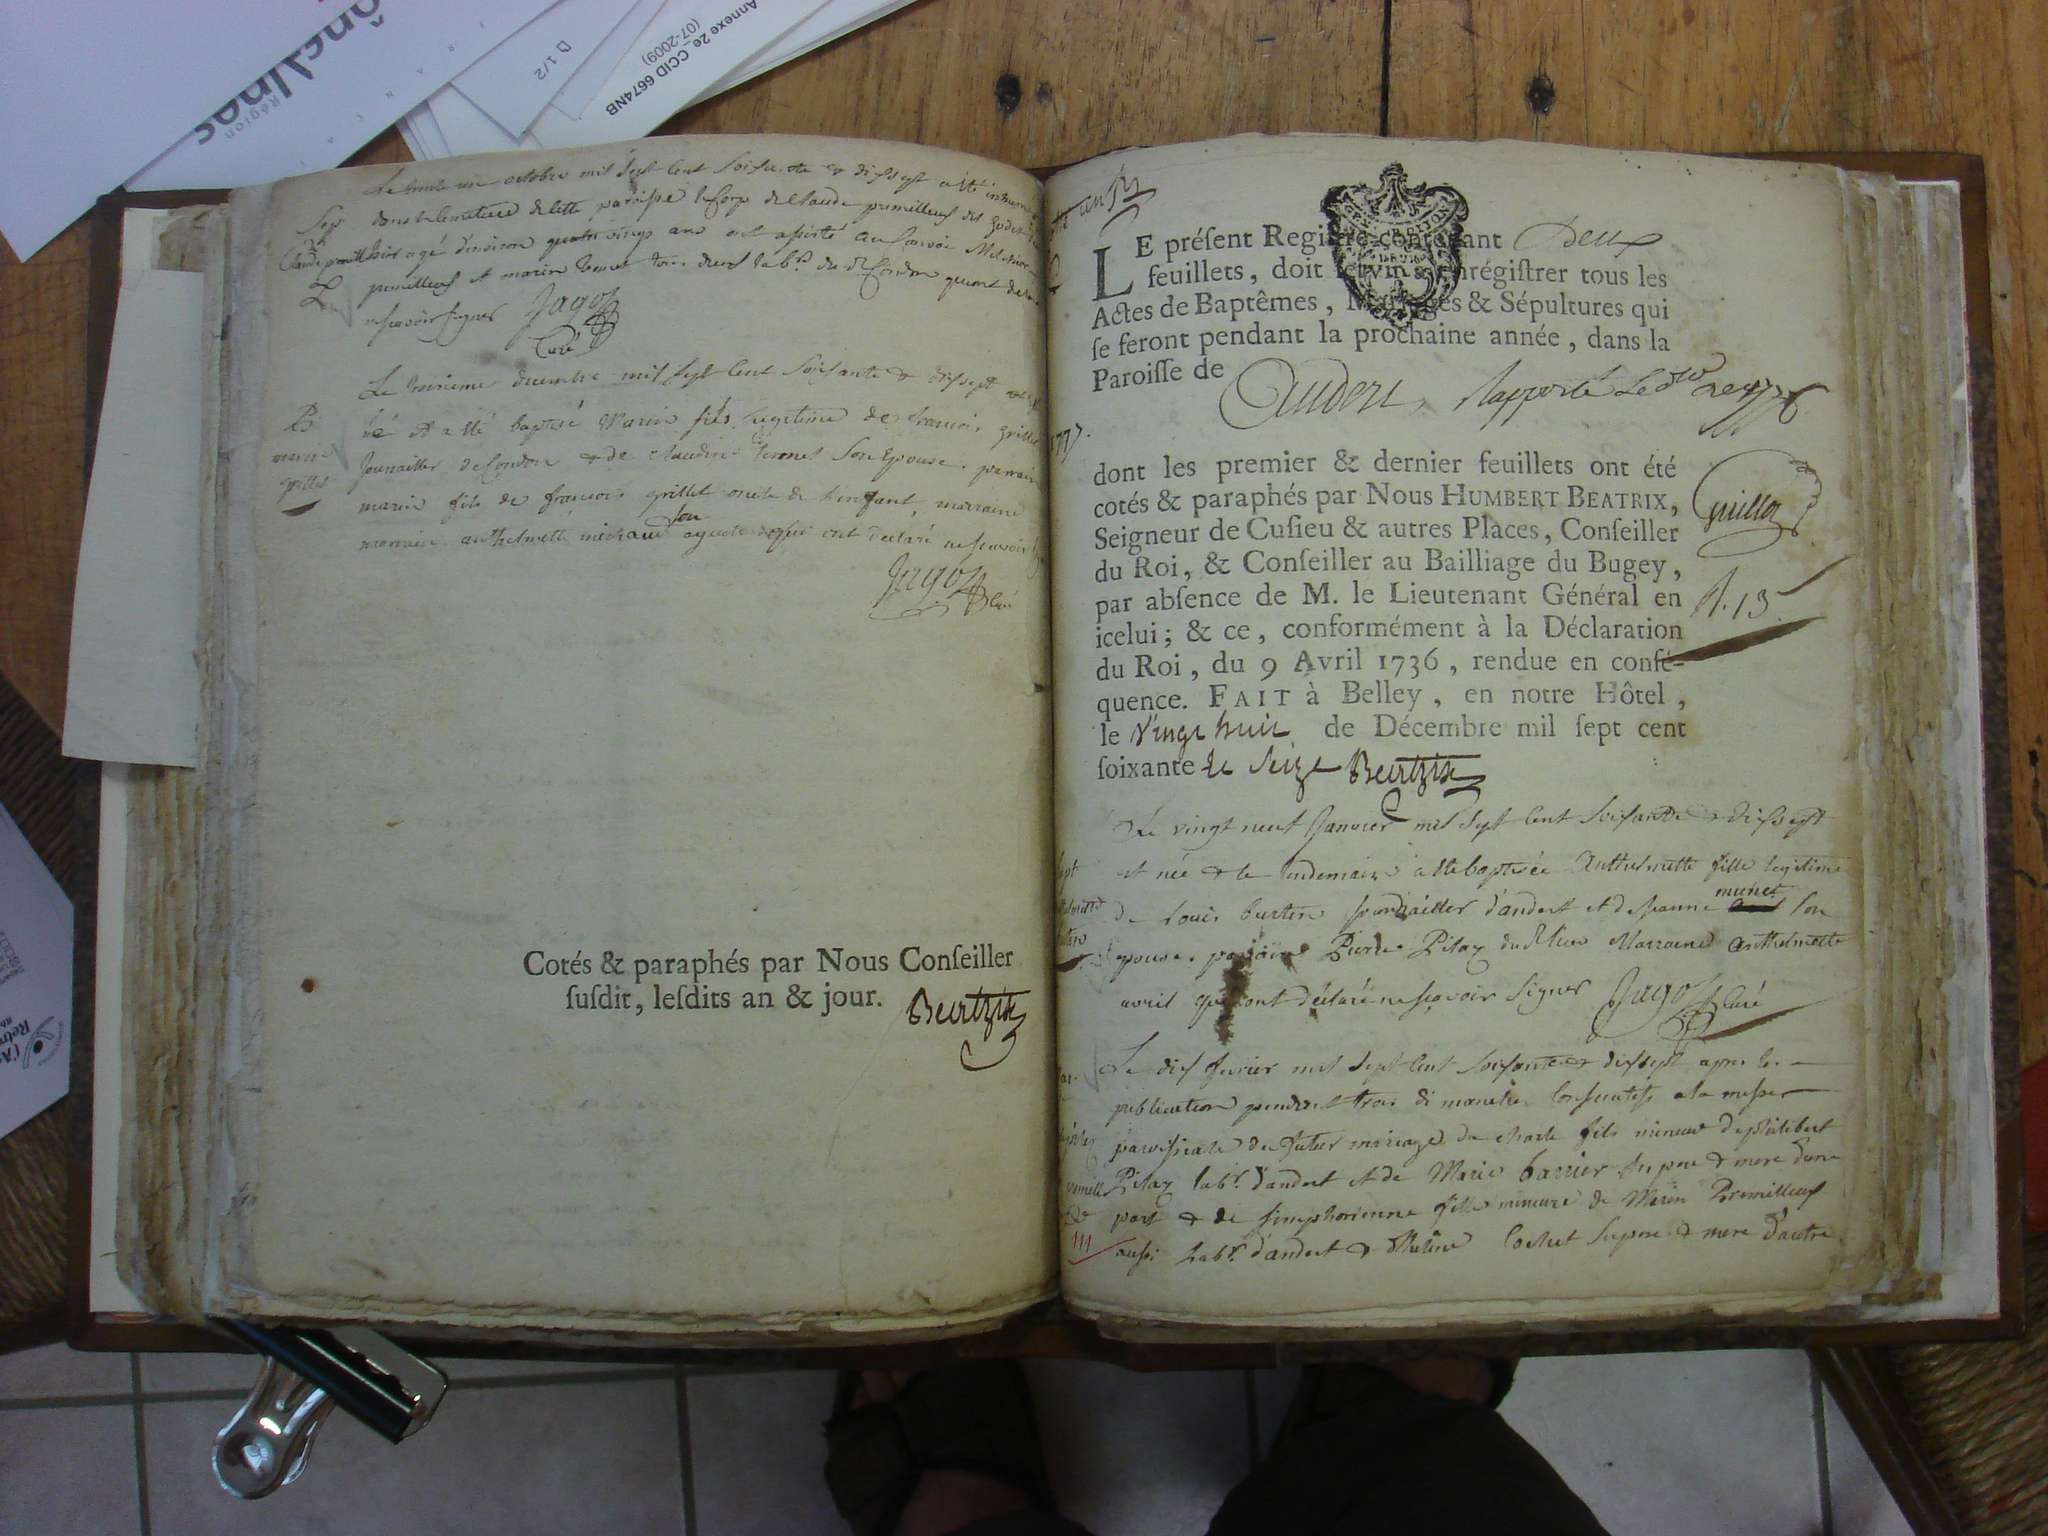 Annexe 2e_CCID 6674NB
(07-2009)
D 1/2
Région
Le trente un octobre mil sept cent soisante & dissept a été inhumé
Sep dans le cimetiere de cette paroisse le corp de Claude premilleuf dit
agé d'environ quatre vingt ans ont assisté au convoi
premilleuf et marin tous deux lab.rs de Condon qui ont
sçavoir signer Jagot
Curé
Le troisieme decembre mil sept cent soisante & dissept
B né et a été baptisé Marin fils legitime de francois grillet
marin journallier de Condon & de claudine son Epouse. parrain
grillet marin fils de francois grillet oncle de l'enfant, marraine
anthelmette michaud son qui ont declaré ne sçavoir
Jagot Curé
Cotés & paraphés par Nous Conſeiller
ſuſdit, leſdits an & jour. Beatrix
LE préſent Regiſtre contenant Deux
feuillets, doit ſervir à enrégiſtrer tous les
Actes de Baptêmes, Mariages & Sépultures qui
ſe feront pendant la prochaine année, dans la
Paroiſſe de
Andert, Rapporté le
1777.
dont les premier & dernier feuillets ont été
cotés & paraphés par Nous HUMBERT BEATRIX,
Seigneur de Cuſieu & autres Places, Conſeiller
du Roi, & Conſeiller au Bailliage du Bugey,
par abſence de M. le Lieutenant Général en
icelui; & ce, conformément à la Déclaration
du Roi, du 9 Avril 1736, rendue en conſé-
quence. FAIT à Belley, en notre Hôtel,
le Vingt huit de Décembre mil ſept cent
ſoixante et Seize Beatrix
Le vingt neuf Janvier mil sept cent soisante & dissept
est née & le lendemain a été baptisée Anthelmette fille legitime
de Louis burtin journailler d'andert et de jeanne munet son
epouse. parrain Pierre Pitay du lieu Marraine Anthelmette
avril qui ont déclaré ne sçavoir signer Jagot Curé
Le dix fevrier mil sept cent soisante & dissept apres la
publication pendent trois dimanches consecutifs a la messe
paroissiale du futur mariage de charle fils mineur de philibert
Pitay lab.r d'andert et de Marie barrier ses pere & mere d'une
part & de simphorienne fille mineure de Marin Premilleuf
111 aussi lab.r d'andert & cochet ses pere & mere d'autre